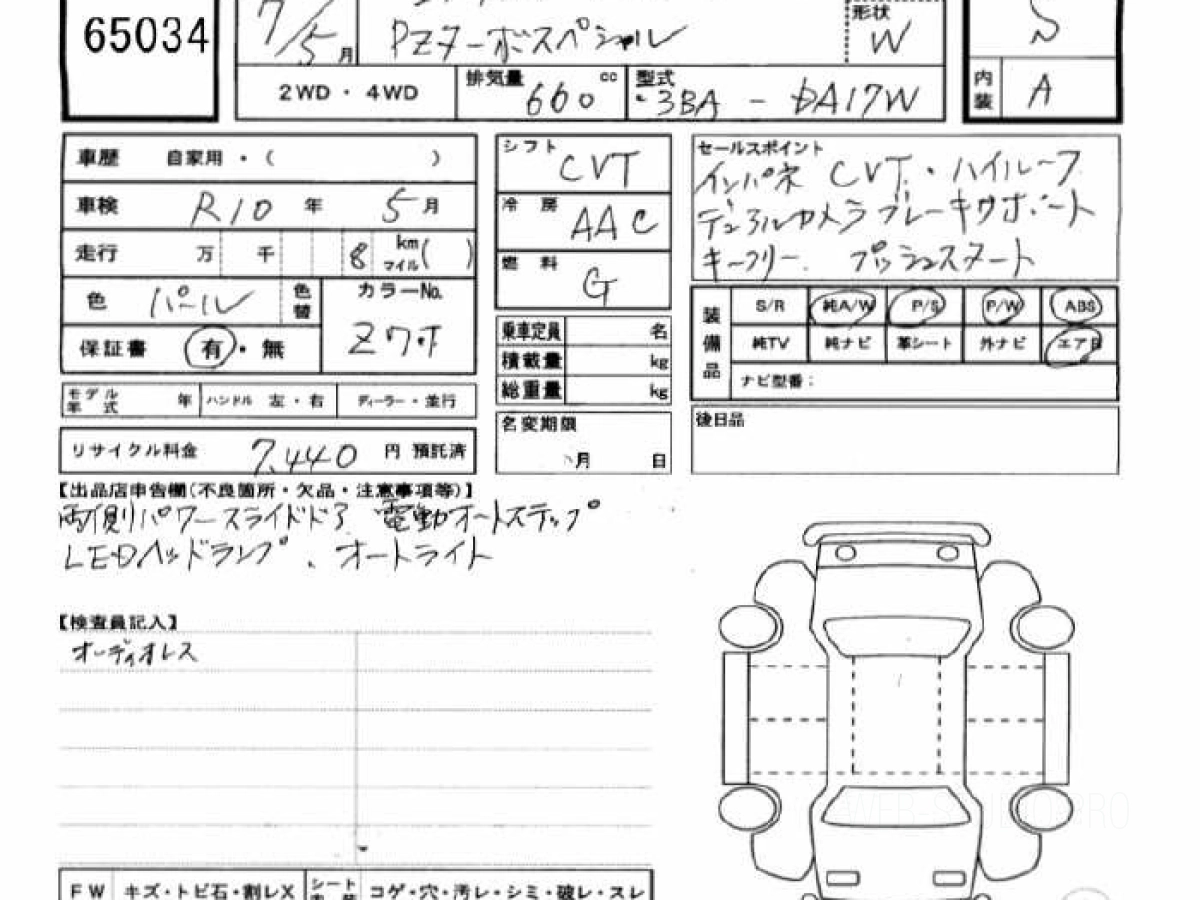 65034
7/5月
PZターボスペシャル
形状
W
S
2WD・4WD
排気量
660
cc
型式
3BA - DA17W
内装
A
車歴 自家用・( )
車検 R10 年 5 月
走行 万 千 8 km マイル( )
色 パール 色替
カラーNo.
Z7T
保証書 有・無
モデル年式 年 ハンドル 左・右 ディーラー・並行
リサイクル料金 7,440 円 預託済
シフト
CVT
冷房
AAC
燃料
G
乗車定員 名
積載量 kg
総重量 kg
名変期限
月 日
セールスポイント
インパネ CVT・ハイルーフ
デュアルカメラブレーキサポート
キーフリー. プッシュスタート
装備品
S/R 純A/W P/S P/W ABS
純TV 純ナビ 革シート 外ナビ エアB
ナビ型番:
後日品
【出品店申告欄(不良箇所・欠品・注意事項等)】
両側パワースライドドア 電動オートステップ
LEDヘッドランプ、オートライト
【検査員記入】
オーディオレス
FW キズ・トビ石・割レX シート コゲ・穴・汚レ・シミ・破レ・スレ